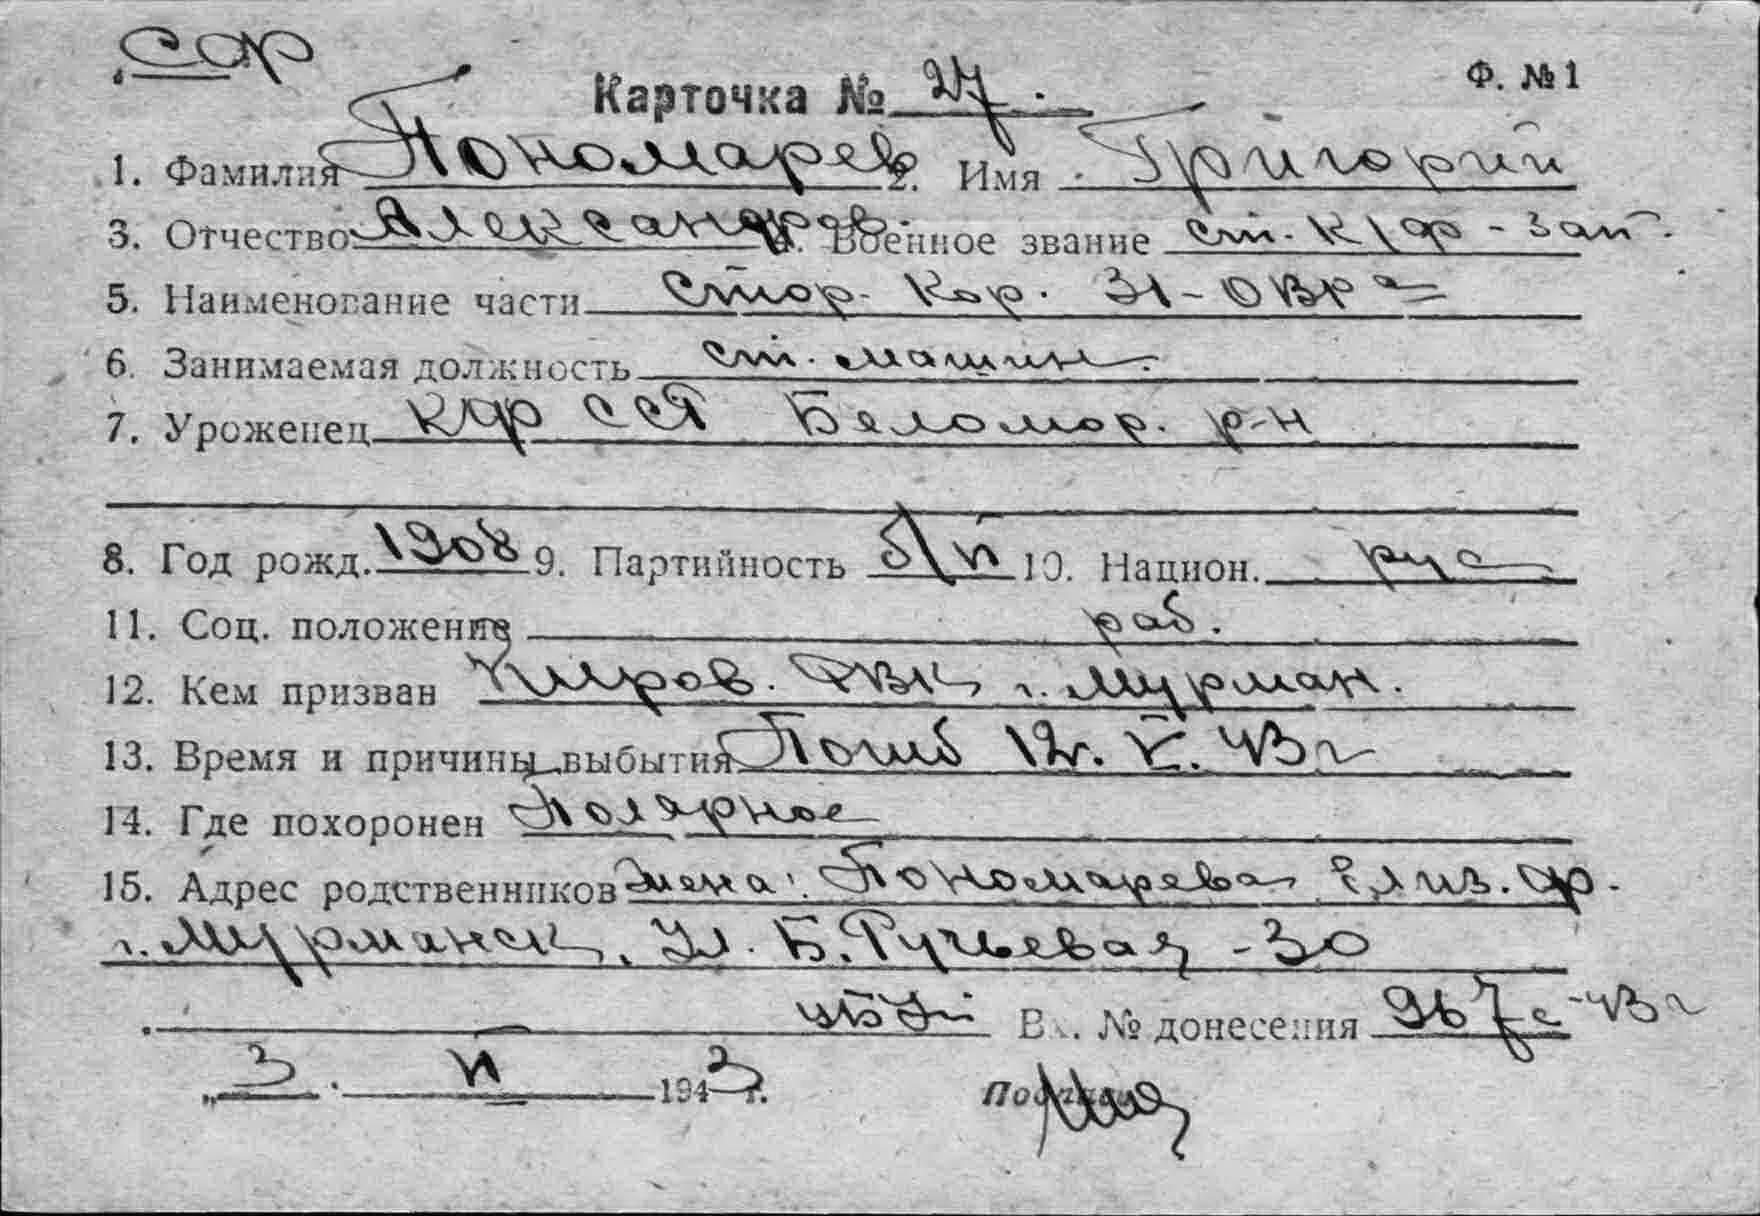 СФ
Карточка № 27. Ф. №1
1. Фамилия Пономарев 2. Имя Григорий
3. Отчество Александров. 4. Военное звание ст. к/ф - зап.
5. Наименование части Стор. Кор. 31 - ОВРа
6. Занимаемая должность ст. машин.
7. Уроженец КФССР Беломор. р-н
8. Год рожд. 1908 9. Партийность б/п 10. Национ. рус
11. Соц. положение раб.
12. Кем призван Киров. РВК г. Мурман.
13. Время и причины выбытия Погиб 12. V. 43 г
14. Где похоронен Полярное
15. Адрес родственников жена: Пономарева Елиз. Ф.
г. Мурманск, ул. Б. Ручьевая - 30
Вх. № донесения 967с - 43 г
„3. VI 1943 г. Подпись